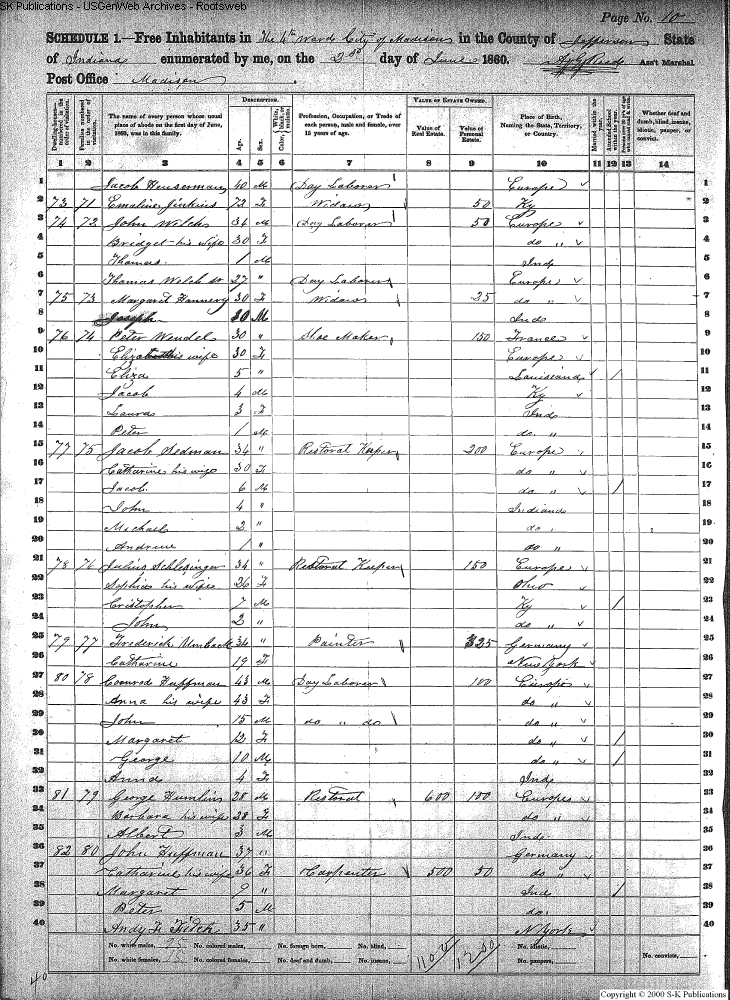 SK Publications - USGenWeb Archives - Rootsweb
Page No. 10
SCHEDULE 1.—Free Inhabitants in The 4th Ward City of Madison in the County of Jefferson State
of Indiana enumerated by me, on the 2nd day of June 1860. Ass't Marshal.
Post Office Madison
Dwelling-houses—numbered in the order of visitation. Families numbered in the order of visitation. The name of every person whose usual place of abode on the first day of June, 1860, was in this family. DESCRIPTION. Age. Sex. Color, White, black, or mulatto. Profession, Occupation, or Trade of each person, male and female, over 15 years of age. VALUE OF ESTATE OWNED. Value of Real Estate. Value of Personal Estate. Place of Birth, Naming the State, Territory, or Country. Married within the year. Attended School within the year. Whether deaf and dumb, blind, insane, idiotic, pauper, or convict.
1 2 3 4 5 6 7 8 9 10 11 12 13 14
1 Jacob Heuserman 40 M Day Laborer Europe 1
2 73 71 Emaline Jinkins 72 F Widow 50 Ky 2
3 74 72 John Welch 34 M Day Laborer 50 Europe 3
4 Bridget his wife 30 F do " 4
5 Thomas 1 M Ind 5
6 Thomas Welch sr 27 " Day Laborer Europe 6
7 75 73 Margaret Hannery 30 F Widow 25 do " 7
8 Joseph M Ind 8
9 76 74 Peter Wendel 30 " Shoe Maker 150 France 9
10 Elizabeth his wife 30 F Europe 10
11 Eliza 5 " Louisiana / 11
12 Jacob 4 M Ky 12
13 Laura 3 F Ind 13
14 Peter 1 M do " 14
15 77 75 Jacob Sedman 34 " Restorat Keeper 200 Europe 15
16 Catharine his wife 30 F do " 16
17 Jacob 6 M do " / 17
18 John 4 " Indiana 18
19 Michael 2 " do 19
20 Andrew 1 " do " 20
21 78 76 Julius Schlesinger 34 " Restorat Keeper 150 Europe 21
22 Sophia his wife 26 F Ohio 22
23 Cristopher 7 M Ky / 23
24 John 2 " do " 24
25 79 77 Frederick Umback 34 " Painter 325 Germany 25
26 Catharine 19 F New York 26
27 80 78 Conrod Huffman 43 M Day Laborer 100 Europe 27
28 Anna his wife 43 F do " 28
29 John 15 M do " do do " 29
30 Margaret 12 F do " / 30
31 George 10 M do " / 31
32 Anna 4 F Ind 32
33 81 79 George Humlins 28 M Restorat 600 100 Europe 33
34 Barbara his wife 28 F do " 34
35 Albert 3 M Ind 35
36 82 80 John Huffman 37 " Germany 36
37 Catharine his wife 36 F Carpenter 500 50 do " 37
38 Margaret 9 " Ind / 38
39 Peter 5 M do 39
40 Andy F Fitch 35 " N York 40
No. white males, 25 No. colored males, No. foreign born, No. blind, 1100 1200 No. idiotic,
No. white females, 15 No. colored females, No. deaf and dumb, No. insane, No. paupers, No. convicts,
40
Copyright © 2000 S-K Publications